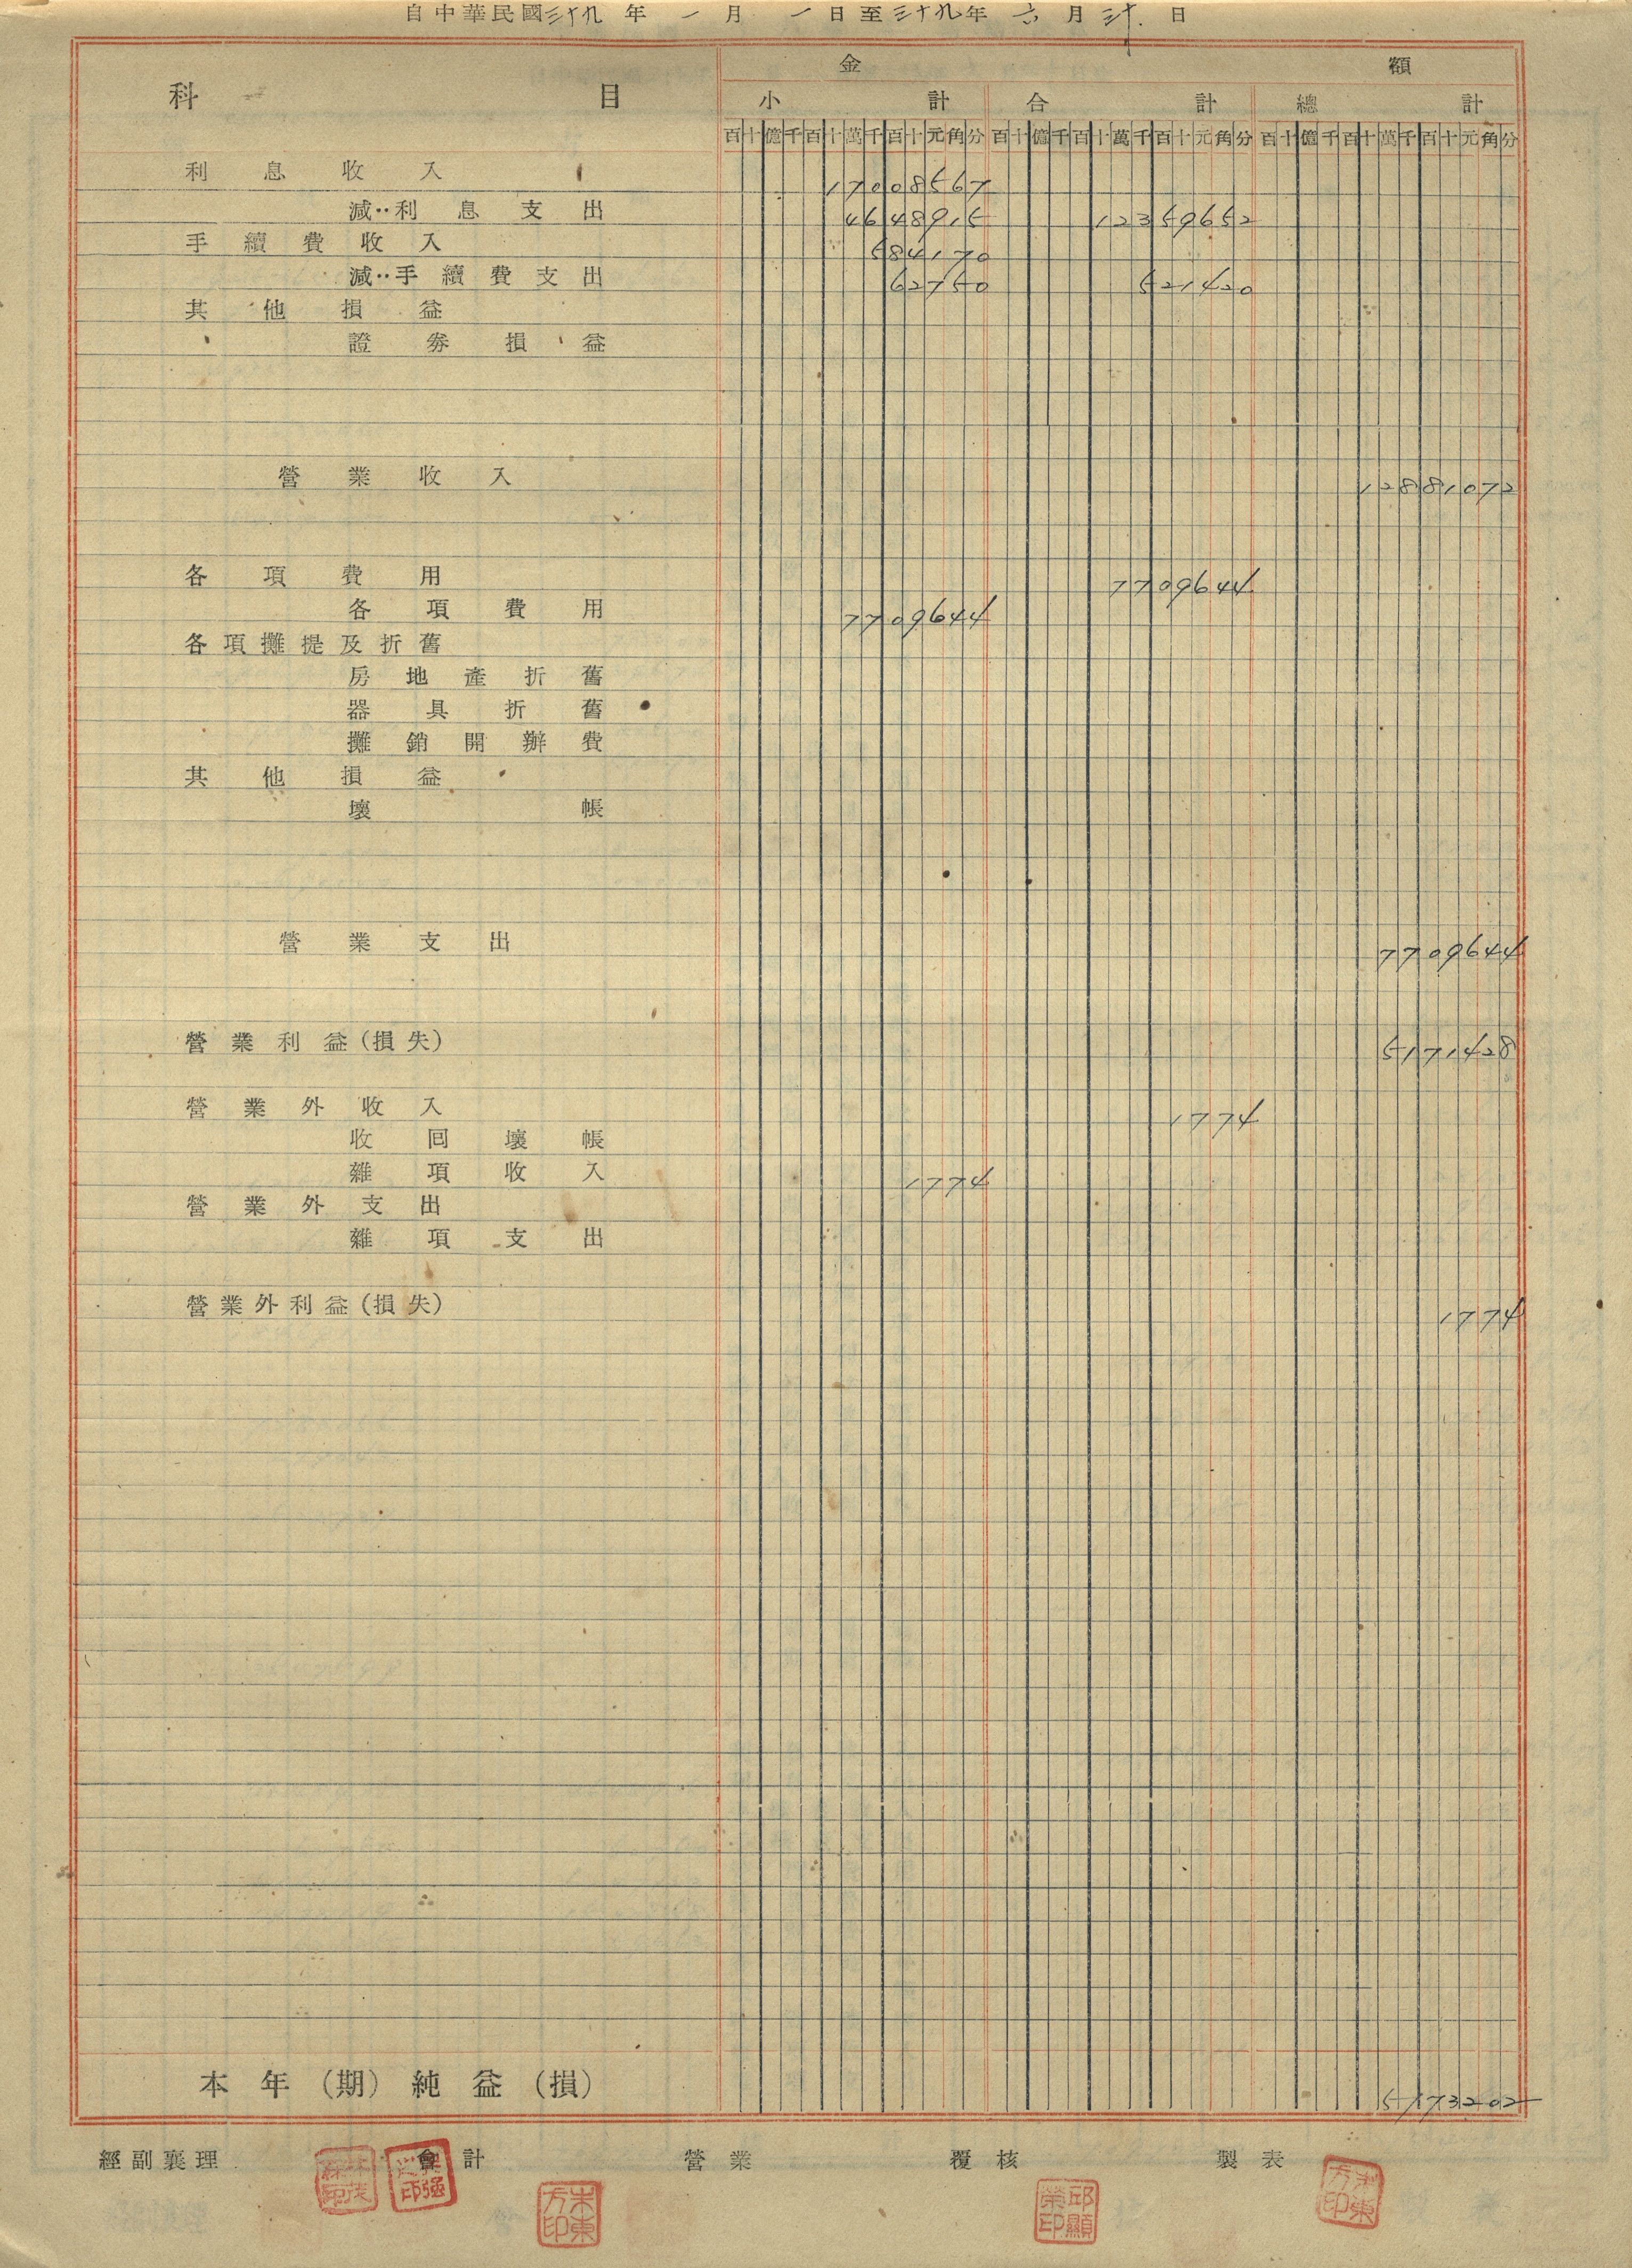 自中華民國三十九年一月一日至三十九年六月三十日
科目 金額
小計 合計 總計
百十億千百十萬千百十元角分 百十億千百十萬千百十元角分 百十億千百十萬千百十元角分
利息收入 17008567
減··利息支出 4648915 12359652
手續費收入 584170
減··手續費支出 62750 521420
其他損益
證券損益
營業收入 12881072
各項費用 7709644
各項費用 7709644
各項攤提及折舊
房地產折舊
器具折舊
攤銷開辦費
其他損益
壞帳
營業支出 7709644
營業利益(損失) 5171428
營業外收入 1774
收回壞帳
雜項收入 1774
營業外支出
雜項支出
營業外利益(損失) 1774
本年(期)純益(損) 5173202
經副襄理 會計 營業 覆核 製表
邱顯榮印